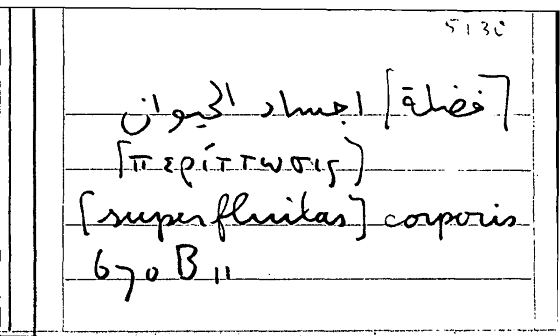 5130
[فضلة] اجساد الحيوان
[περίττωσις]
[superfluitas] corporis
670 B 11